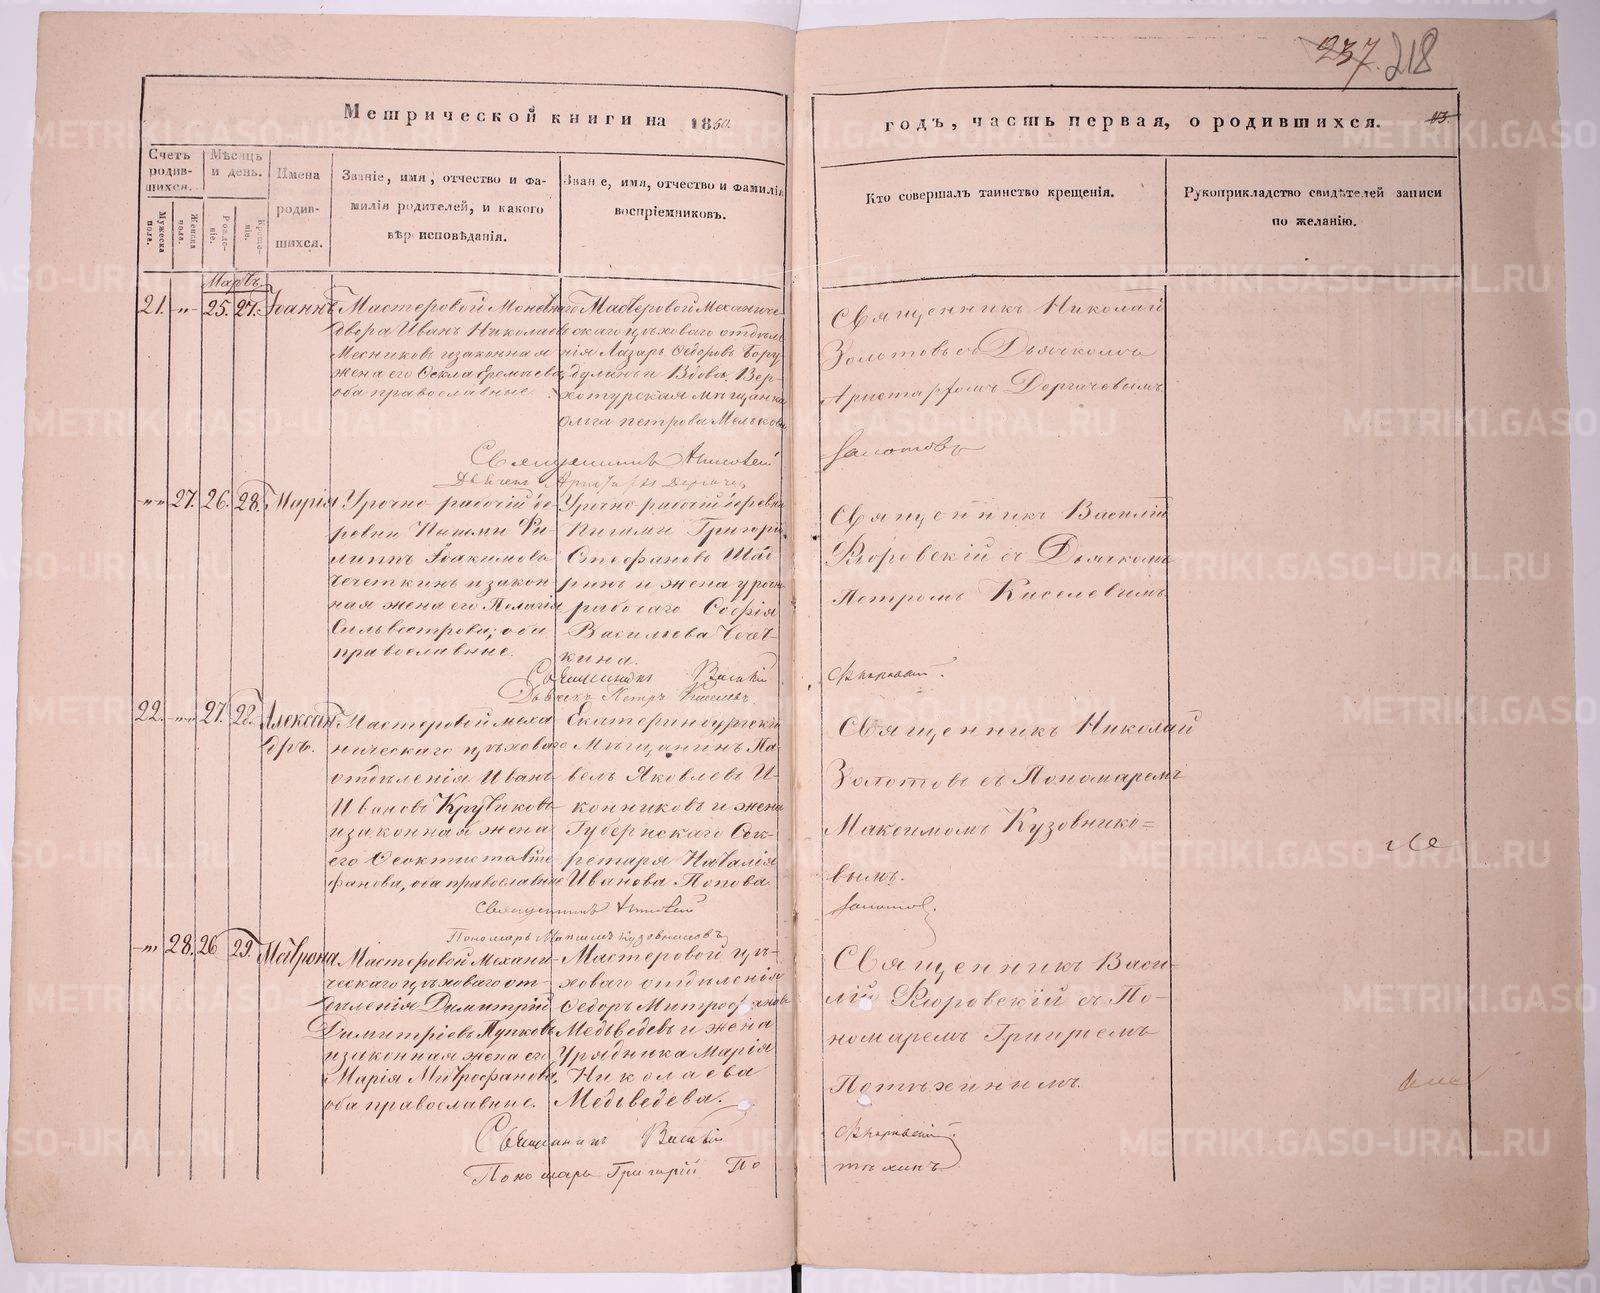 237. 218
Метрической книги на 1860.
годъ, часть первая, о родившихся. 43.
Счетъ родив-шихся.
Мѣсяцъ и день.
Имена родив-шихся.
Званіе, имя, отчество и фа-
милія родителей, и какого
вѣроисповѣданія.
Званіе, имя, отчество и фамилія
воспріемниковъ.
Кто совершалъ таинство крещенія.
Рукоприкладство свидѣтелей записи
по желанію.
Мужеска пола.
Женска пола.
Рожде-ніе.
Креще-ніе.
Мартъ.
21. -"- 25. 27. Іоаннъ
Мастеровой Монетнаго
двора Иванъ Николаевъ
Месниковъ и законная
жена его
оба православные.
Мастеровой Механиче-
скаго цѣховаго отдѣле-
нія Лазарь Ѳедоровъ Бору-
дулинъ и Вдова Вер-
хотурская мѣщанка
Ольга Петрова Мелькова
Священникъ Николай
Золотовъ съ Дьячкомъ
Аристархомъ Дергачевымъ
Священникъ Николай
Золотовъ
Дьячекъ Аристархъ Дергачевъ
-"- 27. 26. 28. Марія
Урочно рабочій де-
ревни Пышмы Фи-
липпъ Іоакимовъ
Чечеткинъ и закон-
ная жена его Пелагія
Сильвестрова; оба
православные.
Урочно рабочій деревни
Пышмы Григорій
Стефановъ
и жена урочно
рабочаго Софія
Васильева Чечет-
кина.
Священникъ Василій
Флоровскій съ Дьячкомъ
Петромъ Киселевымъ
Священникъ Василій
Флоровскій.
Дьячекъ Петръ Киселевъ.
22. -"- 27. 28. Александ-
ръ.
Мастеровой меха-
ническаго цѣховаго
отдѣленія Иванъ
Ивановъ Крутиковъ
и законная жена
его Ѳеоктиста Сте-
фанова, оба православные
Екатеринбургскій
Мѣщанинъ Па-
велъ Яковлевъ И-
конниковъ и жена
Губернскаго Сек-
ретаря Наталія
Иванова Попова.
Священникъ Николай
Золотовъ съ Пономаремъ
Максимомъ Кузовнико-
вымъ.
Священникъ Николай
Золотовъ.
Пономарь Максимъ Кузовниковъ
-"- 28. 26 29. Матрона
Мастеровой Механи-
ческаго цѣховаго от-
дѣленія Димитрій
Димитріевъ Пупковъ
и законная жена его
Марія Митрофанова,
оба православные.
Мастеровой цѣ-
ховаго отдѣленія
Ѳедоръ Митрофановъ
Медвѣдевъ и жена
Урядника Марія
Николаева
Медвѣдева.
Священникъ Васи-
лій Флоровскій съ По-
номаремъ Григорьемъ
Потѣхинымъ.
Священникъ Василій
Флоровскій.
Пономарь Григорій По
тѣхинъ
METRIKI.GASO-URAL.RU